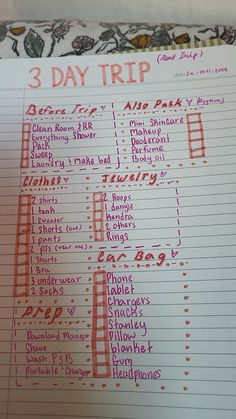 (Road Trip)
3 DAY TRIP
Before Trip
Clean Room & RR
Everything Shower
Pack
Sweep
Laundry & Make bed
Also Pack
Mini Skincare
Makeup
Deodorant
Perfume
Body oil
Clothes
2 shirts
1 tank
1 sweater
2 Shorts (out)
1 pants
2 PJs (wear one)
1 Shorts
1 Bra
3 underwear
3 Socks
Jewelry
2 Hoops
1 dangle
Kendra
2 others
Rings
Prep
Download Movies
Shave
Wash
Portable Charger
Car Bag
Phone
Tablet
Chargers
Snacks
Stanley
Pillow
blanket
Gum
Headphones